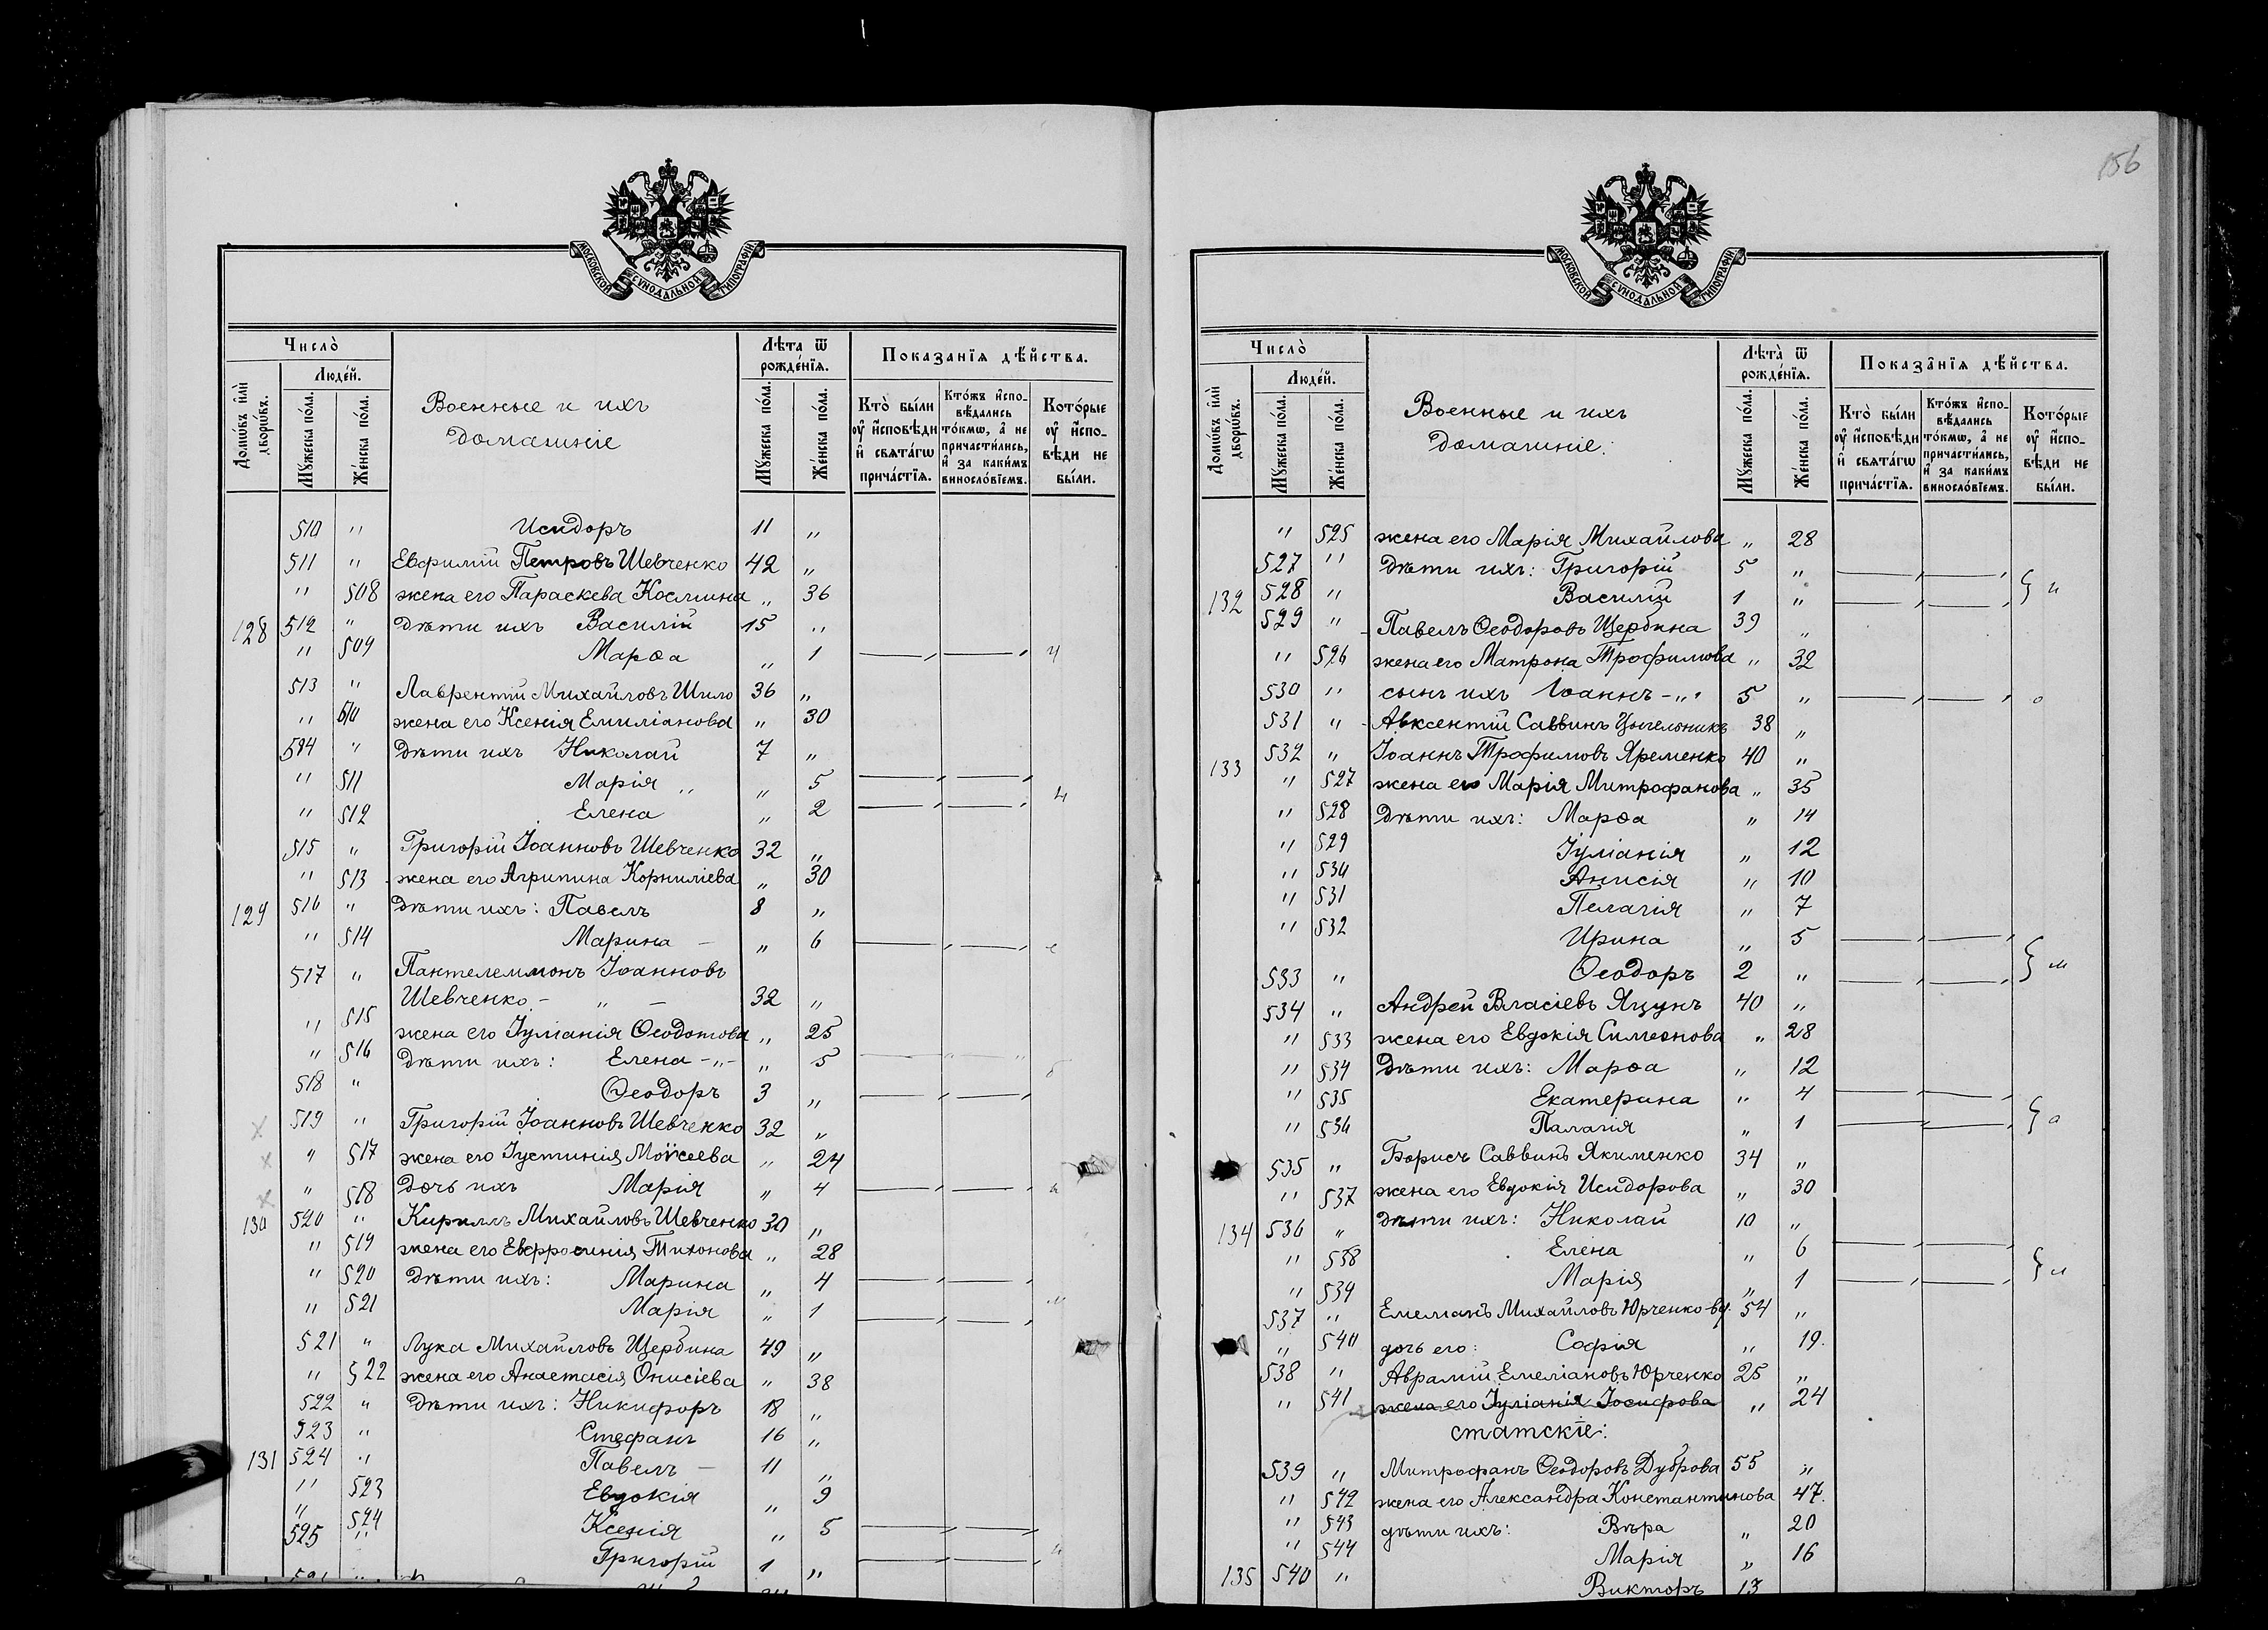 156
МОСКОВСКОЙ СѴНОДАЛЬНОЙ ТИПОГРАФІИ
Число̀
Лѣта ѿ рожде́нїѧ.
Показанїѧ дѣ́йства.
Домѡ́въ и҆лѝ дворѡ́въ.
Люде́й.
Мꙋ́жеска по́ла.
Же́нска по́ла.
Военные и ихъ
домашніе
Мꙋ́жеска по́ла.
Же́нска по́ла.
Кто̀ бы́ли оу҆ и҆сповѣди и҆ свѧта́гѡ прича́стїѧ.
Кто́жъ и҆спо-вѣдались то́кмѡ, а҆ не причасти́лись, и҆ за каки́мъ винословіемъ.
Кото́рые оу҆ и҆спо-вѣди не бы́ли.
510 " Исидоръ 11 "
511 " Евфимій Петровъ Шевченко 42 "
" 508 жена его Параскева Космина " 36
128 512 " дѣти ихъ Василій 15 "
" 509 Марѳа " 1
513 " Лаврентій Михайловъ Шило 36 "
" 510 жена его Ксенія Емиліанова " 30
514 " дѣти ихъ Николай 7 "
" 511 Марія " " 5
" 512 Елена " 2
515 " Григорій Іоанновъ Шевченко 32 "
" 513 жена его Агрипина Корниліева " 30
129 516 " дѣти ихъ: Павелъ 8 "
" 514 Марина – " 6
517 " Пантелеимонъ Іоанновъ
Шевченко – " – 32 "
" 515 жена его Іуліанія Ѳеодотова " 25
" 516 дѣти ихъ: Елена -"- " 5
518 " Ѳеодоръ 3 "
519 " Григорій Іоанновъ Шевченко 32 "
" 517 жена его Іустинія Моѵсеева " 24
" 518 дочь ихъ Марія " 4
130 520 " Кириллъ Михайловъ Шевченко 30 "
" 519 жена его Евфросинія Тихонова " 28
" 520 дѣти ихъ: Марина " 4
" 521 Марія " 1
521 " Лука Михайловъ Щербина 49 "
" 522 жена его Анастасія Онисіева " 38
522 " дѣти ихъ: Никифоръ 18 "
523 " Стефанъ 16 "
131 524 " Павелъ – 11 "
" 523 Евдокія " 9
" 524 Ксенія " 5
525 " Григорій 1 "
МОСКОВСКОЙ СѴНОДАЛЬНОЙ ТИПОГРАФІИ
Число̀
Лѣта̀ ѿ рожде́нїѧ.
Показанїѧ дѣ́йства.
Домѡ́въ и҆лѝ дворѡ́въ.
Люде́й.
Мꙋ́жеска по́ла.
Же́нска по́ла.
Военные и ихъ
домашніе:
Мꙋ́жеска по́ла.
Же́нска по́ла.
Кто̀ бы́ли оу҆ и҆сповѣди и҆ свѧта́гѡ прича́стїѧ.
Кто́жъ и҆спо-вѣдались то́кмѡ, а҆ не причасти́лись, и҆ за каки́мъ винословіемъ.
Кото́рые оу҆ и҆спо-вѣди не бы́ли.
" 525 жена его Марія Михайлова " 28
527 " дѣти ихъ: Григорій 5 "
132 528 " Василій 1 "
529 " Павелъ Ѳеодоровъ Щербина 39 "
" 526 жена его Матрона Трофимова " 32
530 " сынъ ихъ Іоаннъ -"- 5 "
531 " Авксентій Саввинъ 38 "
133 532 " Іоаннъ Трофимовъ Яременко 40 "
" 527 жена его Марія Митрофанова " 35
" 528 дѣти ихъ: Марѳа " 14
" 529 Іуліанія " 12
" 530 Анисія " 10
" 531 Пелагія " 7
" 532 Ирина " 5
533 " Ѳеодоръ 2 "
534 " Андрей Власіевъ Яцунъ 40 "
" 533 жена его Евдокія Симеонова " 28
" 534 дѣти ихъ: Марѳа " 12
" 535 Екатерина " 4
" 536 Палагія " 1
535 " Борисъ Саввинъ Якименко 34 "
" 537 жена его Евдокія Исидорова " 30
134 536 " дѣти ихъ: Николай 10 "
" 538 Елена " 6
" 539 Марія " 1
537 " Емеліанъ Михайловъ Юрченко вд. 54 "
" 540 дочь его: Софія " 19.
538 " Аврамій Емеліановъ Юрченко 25 "
" 541 жена его Іуліанія Іосифова " 24
статскіе:
539 " Митрофанъ Ѳеодоровъ Дуброва 55 "
" 542 жена его Александра Константинова 47.
" 543 дѣти ихъ: Вѣра " 20
" 544 Марія " 16
135 540 " Викторъ 13